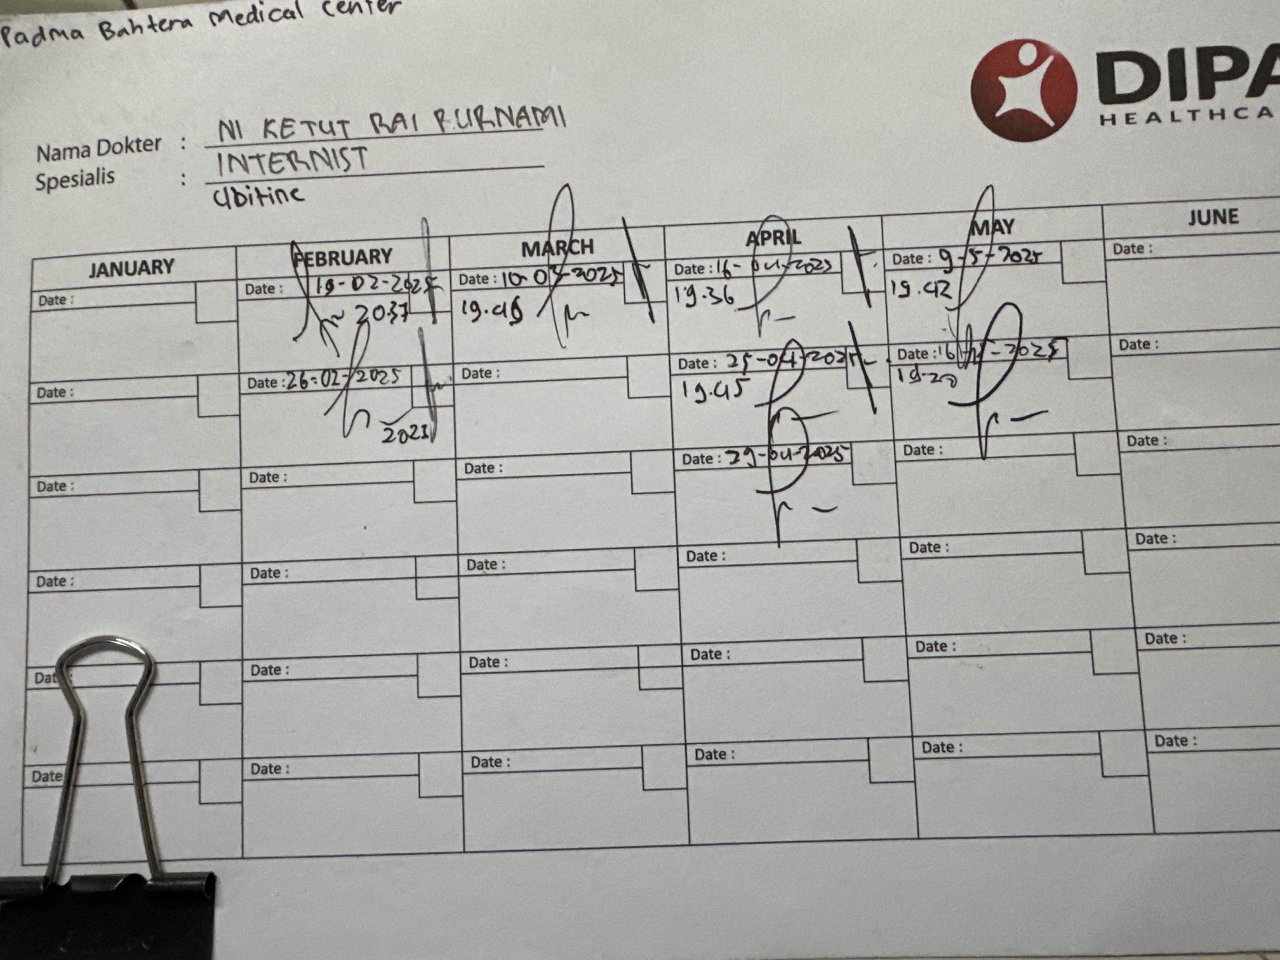 Padma Bahtera Medical Center
DIPA
HEALTHCA
Nama Dokter : NI KETUT RAI PURNAMI
Spesialis : INTERNIST
Ubitinc
JANUARY FEBRUARY MARCH APRIL MAY JUNE
Date : Date : 19-02-2025 Date : 10-03-2025 Date : 16-04-2025 Date : 9-5-2025 Date :
2037 19.45 19.36 19.42
Date : Date : 26-02-2025 Date : Date : 25-04-2025 Date : 16-05-2025 Date :
2021 19.45 19.20
Date : Date : Date : Date : 29-04-2025 Date : Date :
Date : Date : Date : Date : Date : Date :
Dat Date : Date : Date : Date : Date :
Date Date : Date : Date : Date : Date :